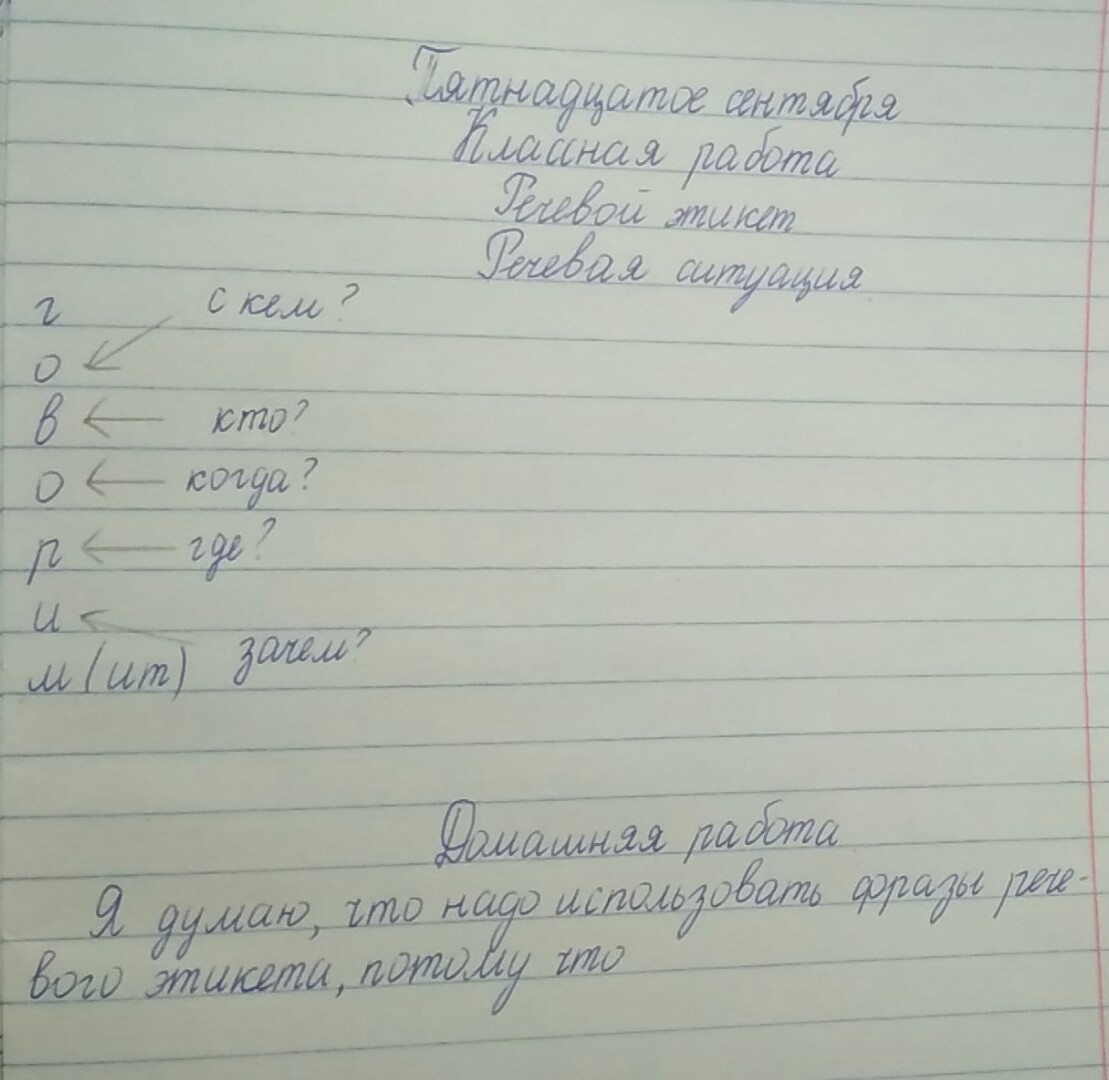 Пятнадцатое сентября
Классная работа
Речевой этикет
Речевая ситуация
г с кем?
о
в кто?
о когда?
р где?
и
м (ит) зачем?
Домашняя работа
Я думаю, что надо использовать фразы рече-
вого этикета, потому что